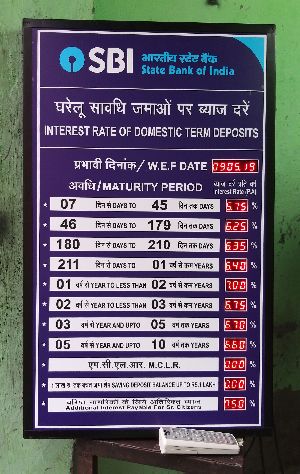 SBI भारतीय स्टेट बैंक
State Bank of India
घरेलू सावधि जमाओं पर ब्याज दरें
INTEREST RATE OF DOMESTIC TERM DEPOSITS
प्रभावी दिनांक/ W.E.F DATE 09.05.19
अवधि/MATURITY PERIOD ब्याज दरें प्रति वर्ष
Interest Rate (P.A)
★ 07 दिन से DAYS TO 45 दिन तक DAYS 5.75 %
★ 46 दिन से DAYS TO 179 दिन तक DAYS 6.25 %
★ 180 दिन से DAYS TO 210 दिन तक DAYS 6.35 %
★ 211 दिन से DAYS TO 01 वर्ष से कम YEARS 6.40 %
★ 01 वर्ष से YEAR TO LESS THAN 02 वर्ष से कम YEARS 7.00 %
★ 02 वर्ष से YEAR TO LESS THAN 03 वर्ष से कम YEARS 6.75 %
★ 03 वर्ष से YEAR AND UPTO 05 वर्ष तक YEARS 6.70 %
★ 05 वर्ष से YEAR AND UPTO 10 वर्ष तक YEARS 6.60 %
★ एम.सी.एल.आर. M.C.L.R. 0.00 %
★ SAVING DEPOSIT BALANCE UP TO RS.1 LAKH 0.00 %
★ वरिष्ठ नागरिकों के लिये अतिरिक्त ब्याज
Additional Interest Payable For Sr. Citizens 7.50 %